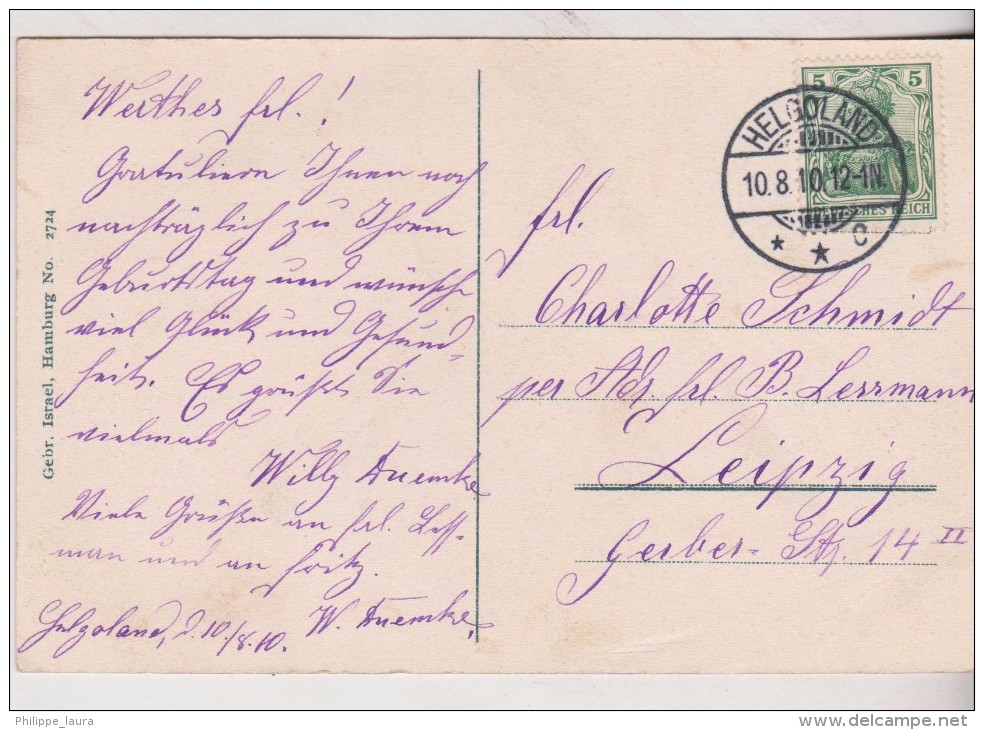 Werthes frl.!
Gratuliere Ihnen noch
nachträglich zu Ihrem
Geburtstag und wünsche
viel Glück und Gesund-
heit. Es grüßt Sie
vielmals
Willy Duemke
Viele Grüße an frl. Less-
man und an Fritz.
W. Duemke,
Helgoland, d. 10./8.10.
Gebr. Israel, Hamburg No. 2724
5 5
DEUTSCHES REICH
HELGOLAND
10.8.10.12-1N.
* * C
frl.
Charlotte Schmidt
per Adr. frl. B. Lessmann
Leipzig
Gerber-Str. 14 II
Philippe_laura
www.delcampe.net